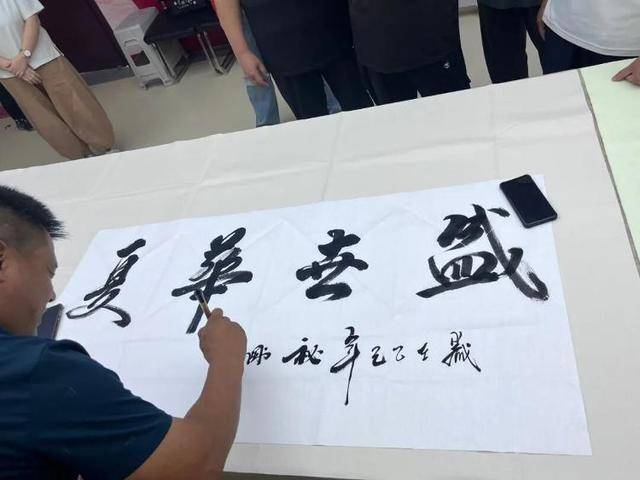 盛世華夏
歲在乙巳年